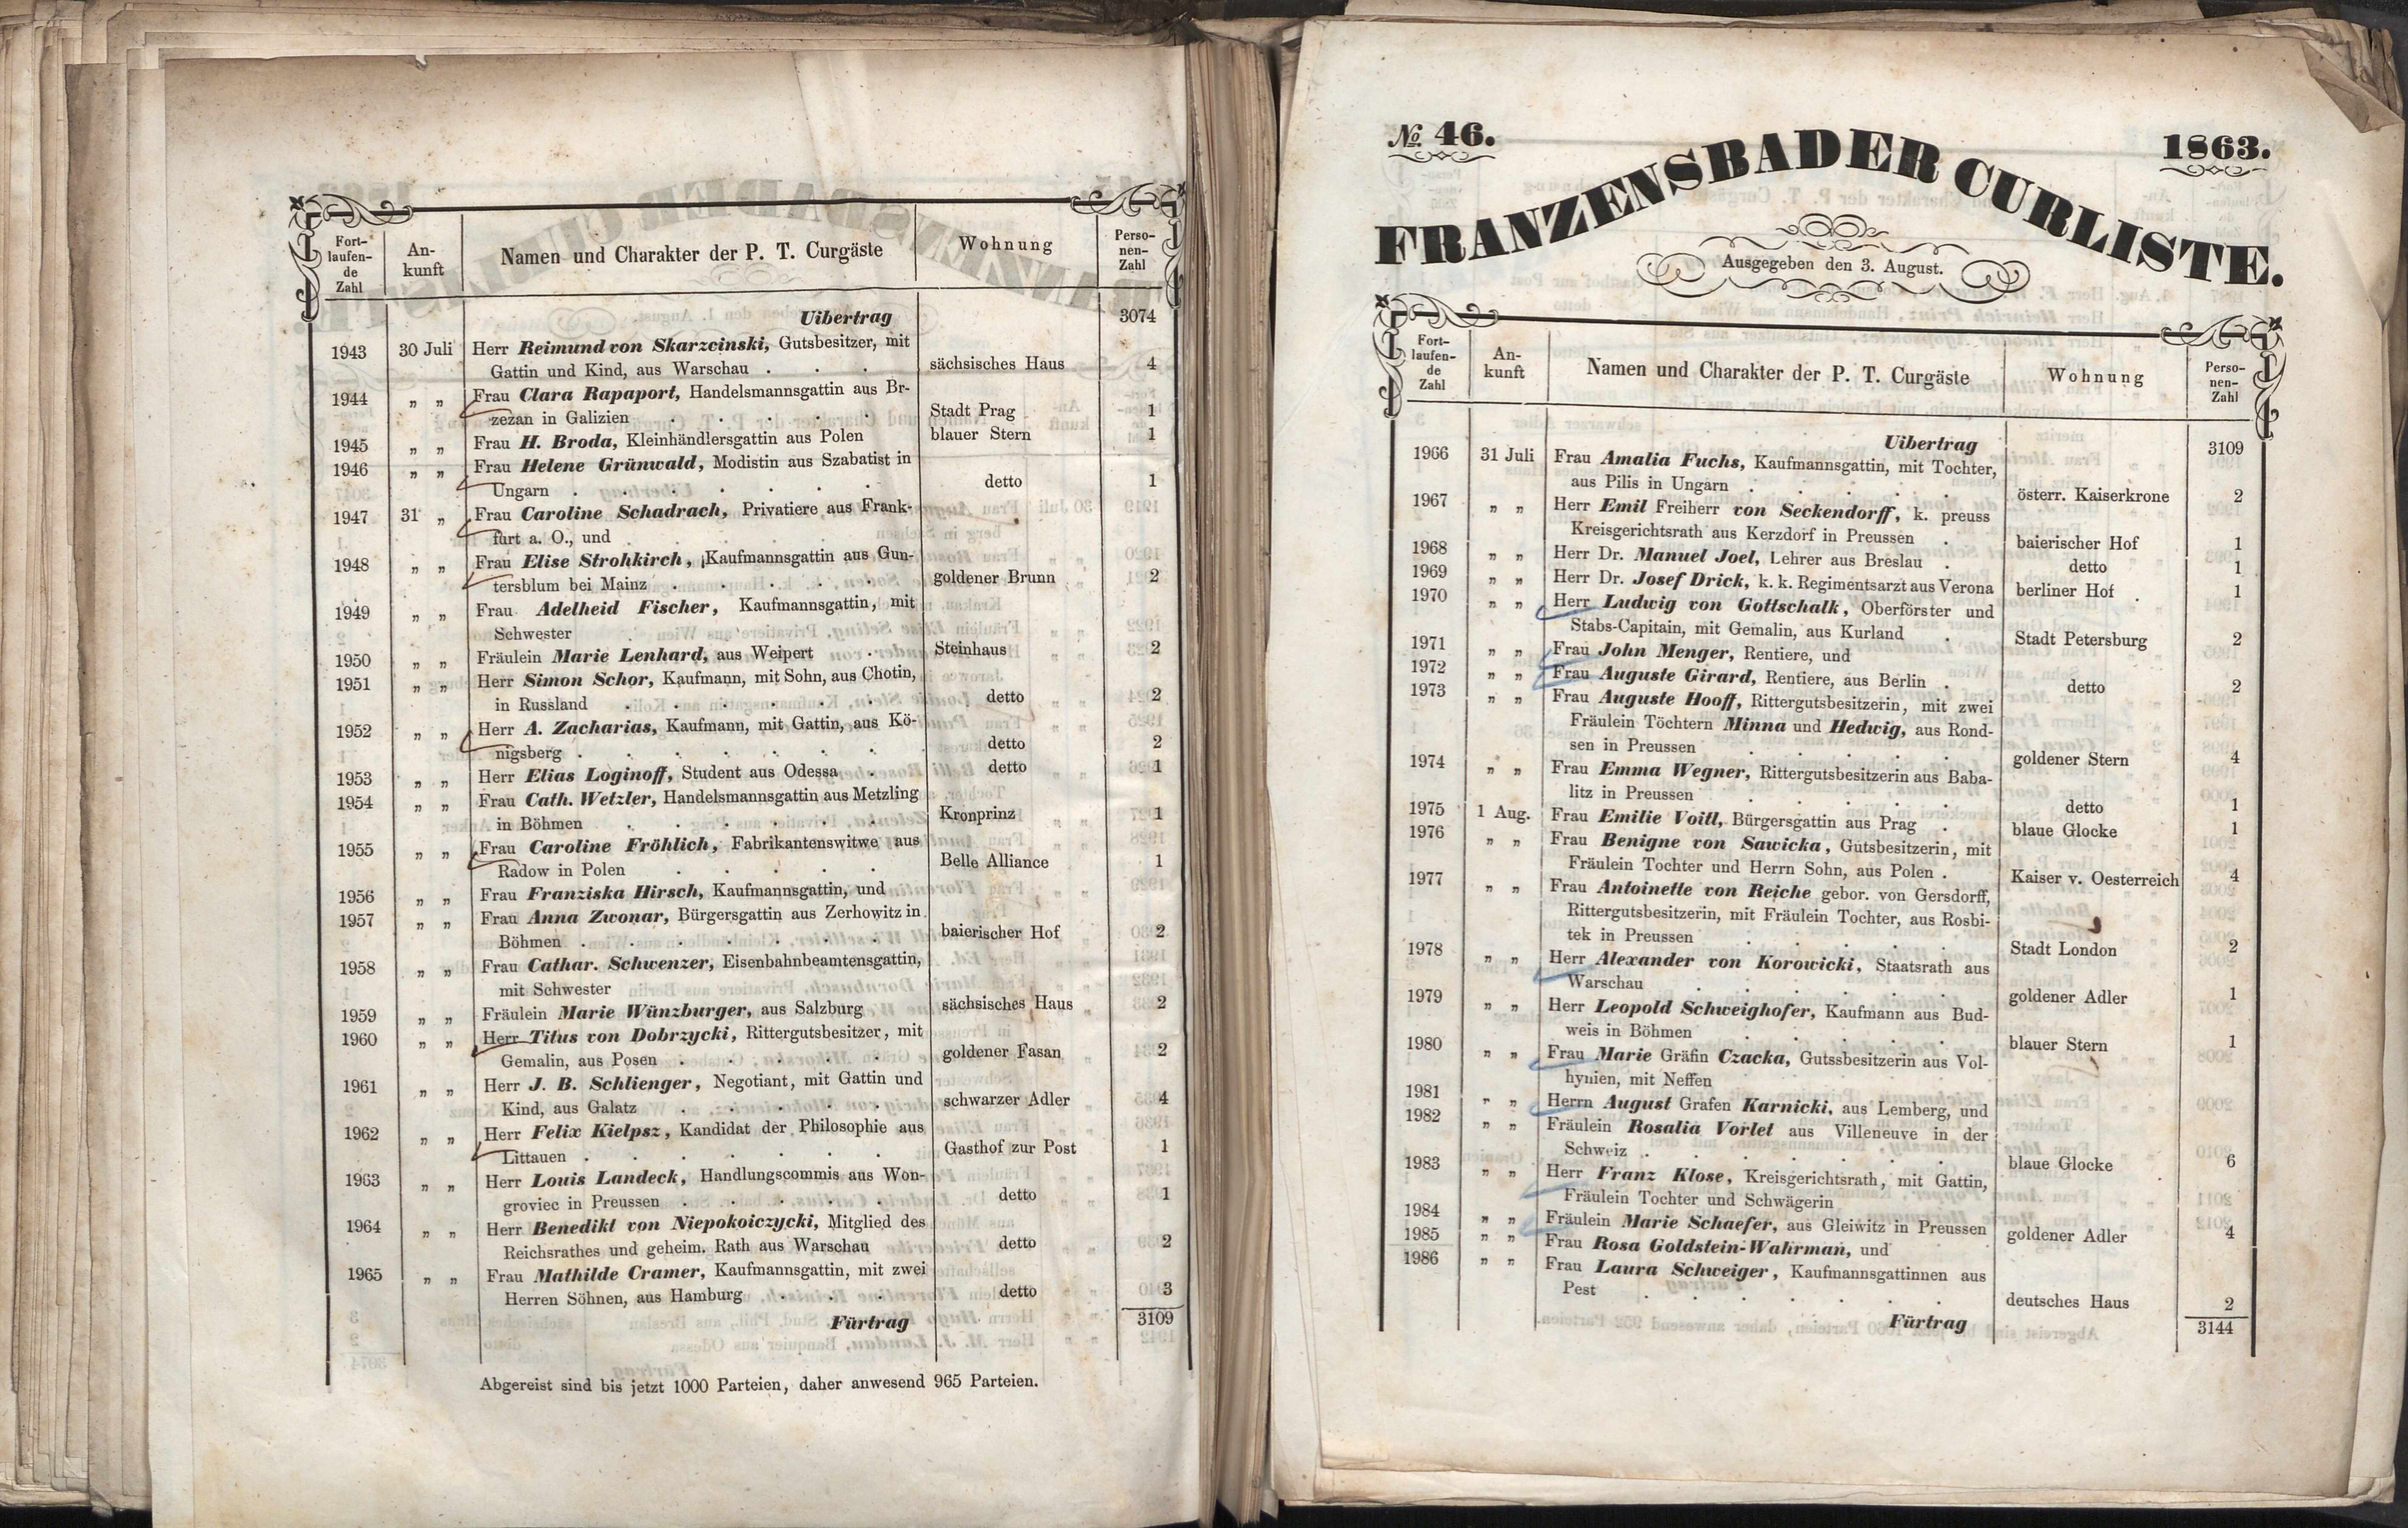 Fort-
laufen-
de
Zahl
An-
kunft
Namen und Charakter der P. T. Curgäste
Wohnung
Perso-
nen-
Zahl
Uibertrag 3074
1943 30 Juli Herr Reimund von Skarzcinski, Gutsbesitzer, mit
Gattin und Kind, aus Warschau . . . sächsisches Haus 4
1944 „ „ Frau Clara Rapaport, Handelsmannsgattin aus Br-
zezan in Galizien . . . . . Stadt Prag 1
1945 „ „ Frau H. Broda, Kleinhändlersgattin aus Polen blauer Stern 1
1946 „ „ Frau Helene Grünwald, Modistin aus Szabatist in
Ungarn . . . . . . . detto 1
1947 31 „ Frau Caroline Schadrach, Privatiere aus Frank-
furt a. O., und
1948 „ „ Frau Elise Strohkirch, Kaufmannsgattin aus Gun-
tersblum bei Mainz . . . . . goldener Brunn 2
1949 „ „ Frau Adelheid Fischer, Kaufmannsgattin, mit
Schwester . . . . . . Steinhaus 2
1950 „ „ Fräulein Marie Lenhard, aus Weipert .
1951 „ „ Herr Simon Schor, Kaufmann, mit Sohn, aus Chotin,
in Russland . . . . . . detto 2
1952 „ „ Herr A. Zacharias, Kaufmann, mit Gattin, aus Kö-
nigsberg . . . . . . . detto 2
1953 „ „ Herr Elias Loginoff, Student aus Odessa . detto 1
1954 „ „ Frau Cath. Wetzler, Handelsmannsgattin aus Metzling
in Böhmen . . . . . . Kronprinz 1
1955 „ „ Frau Caroline Fröhlich, Fabrikantenswitwe aus
Radow in Polen . . . . . Belle Alliance 1
1956 „ „ Frau Franziska Hirsch, Kaufmannsgattin, und
1957 „ „ Frau Anna Zwonar, Bürgersgattin aus Zerhowitz in
Böhmen . . . . . . . baierischer Hof 2
1958 „ „ Frau Cathar. Schwenzer, Eisenbahnbeamtensgattin,
mit Schwester
1959 „ „ Fräulein Marie Wünzburger, aus Salzburg sächsisches Haus 2
1960 „ „ Herr Titus von Dobrzycki, Rittergutsbesitzer, mit
Gemalin, aus Posen . . . . . goldener Fasan 2
1961 „ „ Herr J. B. Schlienger, Negotiant, mit Gattin und
Kind, aus Galatz . . . . . schwarzer Adler 4
1962 „ „ Herr Felix Kielpsz, Kandidat der Philosophie aus
Littauen . . . . . . . Gasthof zur Post 1
1963 „ „ Herr Louis Landeck, Handlungscommis aus Won-
groviec in Preussen . . . . . detto 1
1964 „ „ Herr Benedikt von Niepokoiczycki, Mitglied des
Reichsrathes und geheim. Rath aus Warschau detto 2
1965 „ „ Frau Mathilde Cramer, Kaufmannsgattin, mit zwei
Herren Söhnen, aus Hamburg . . . detto 3
Fürtrag 3109
Abgereist sind bis jetzt 1000 Parteien, daher anwesend 965 Parteien.
No. 46. 1863.
FRANZENSBADER CURLISTE.
Ausgegeben den 3. August.
Fort-
laufen-
de
Zahl
An-
kunft
Namen und Charakter der P. T. Curgäste
Wohnung
Perso-
nen-
Zahl
Uibertrag 3109
1966 31 Juli Frau Amalia Fuchs, Kaufmannsgattin, mit Tochter,
aus Pilis in Ungarn . . . . . österr. Kaiserkrone 2
1967 „ „ Herr Emil Freiherr von Seckendorff, k. preuss
Kreisgerichtsrath aus Kerzdorf in Preussen . baierischer Hof 1
1968 „ „ Herr Dr. Manuel Joel, Lehrer aus Breslau . detto 1
1969 „ „ Herr Dr. Josef Drick, k. k. Regimentsarzt aus Verona berliner Hof . 1
1970 „ „ Herr Ludwig von Gottschalk, Oberförster und
Stabs-Capitain, mit Gemalin, aus Kurland . Stadt Petersburg 2
1971 „ „ Frau John Menger, Rentiere, und
1972 „ „ Frau Auguste Girard, Rentiere, aus Berlin . detto 2
1973 „ „ Frau Auguste Hooff, Rittergutsbesitzerin, mit zwei
Fräulein Töchtern Minna und Hedwig, aus Rond-
sen in Preussen . . . . . goldener Stern 4
1974 „ „ Frau Emma Wegner, Rittergutsbesitzerin aus Baba-
litz in Preussen . . . . . detto 1
1975 1 Aug. Frau Emilie Voitl, Bürgersgattin aus Prag . blaue Glocke 1
1976 „ „ Frau Benigne von Sawicka, Gutsbesitzerin, mit
Fräulein Tochter und Herrn Sohn, aus Polen . Kaiser v. Oesterreich 4
1977 „ „ Frau Antoinette von Reiche gebor. von Gersdorff,
Rittergutsbesitzerin, mit Fräulein Tochter, aus Rosbi-
tek in Preussen . . . . . Stadt London 2
1978 „ „ Herr Alexander von Korowicki, Staatsrath aus
Warschau . . . . . . goldener Adler 1
1979 „ „ Herr Leopold Schweighofer, Kaufmann aus Bud-
weis in Böhmen . . . . . blauer Stern 1
1980 „ „ Frau Marie Gräfin Czacka, Gutssbesitzerin aus Vol-
hynien, mit Neffen
1981 „ „ Herrn August Grafen Karnicki, aus Lemberg, und
1982 „ „ Fräulein Rosalia Vorlet aus Villeneuve in der
Schweiz . . . . . . . blaue Glocke 6
1983 „ „ Herr Franz Klose, Kreisgerichtsrath, mit Gattin,
Fräulein Tochter und Schwägerin
1984 „ „ Fräulein Marie Schaefer, aus Gleiwitz in Preussen goldener Adler 4
1985 „ „ Frau Rosa Goldstein-Wahrman, und
1986 „ „ Frau Laura Schweiger, Kaufmannsgattinnen aus
Pest . . . . . . . deutsches Haus 2
Fürtrag 3144